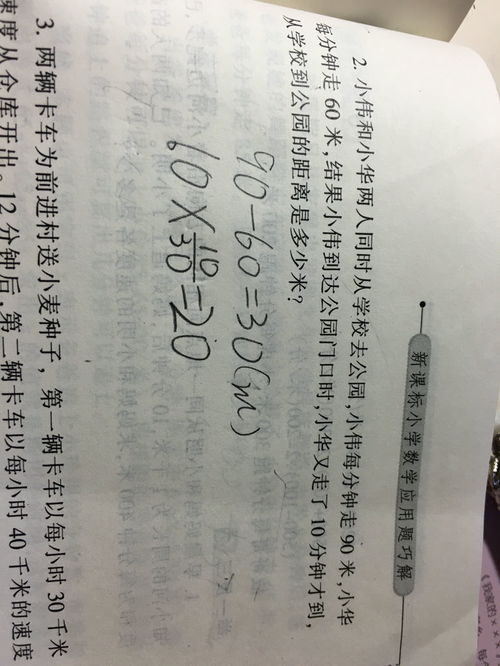 新课标小学数学应用题巧解
2. 小伟和小华两人同时从学校去公园,小伟每分钟走 90 米,小华
每分钟走 60 米,结果小伟到达公园门口时,小华又走了 10 分钟才到,
从学校到公园的距离是多少米?
90-60=30(m)
60×10/30=20
3. 两辆卡车为前进村送小麦种子，第一辆卡车以每小时 30 千米
速度从仓库开出。12 分钟后,第二辆卡车以每小时 40 千米的速度